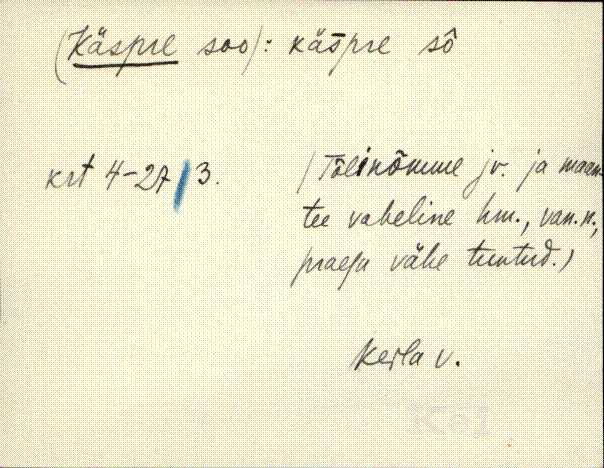 (Käspre soo): käspre sō
krt 4-27/3.
(Tõlinõmme jv. ja maan-
tee vaheline hm., van.n.,
praegu vähe tuntud.)
Keila v.